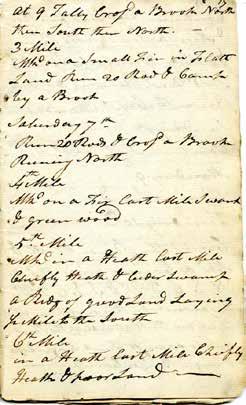 at 9 Tally Cross a Brook North
then South then North.
3 Mile
Mkd on a Small Fir in Heath
Land Run 20 Rod & Camp
by a Brook
Saturday 7th
Run 20 Rod & Cross a Brook
Runing North
4th Mile
Mkd on a Fir East Mile Swamp
& green wood
5th Mile
Mkd in a Heath East Mile
Cheifly Heath & Ceder Swamp
a Redg of good Land Laying
Mile to the South
6th Mile
in a Heath East Mile Cheifly
Heath & poor Land